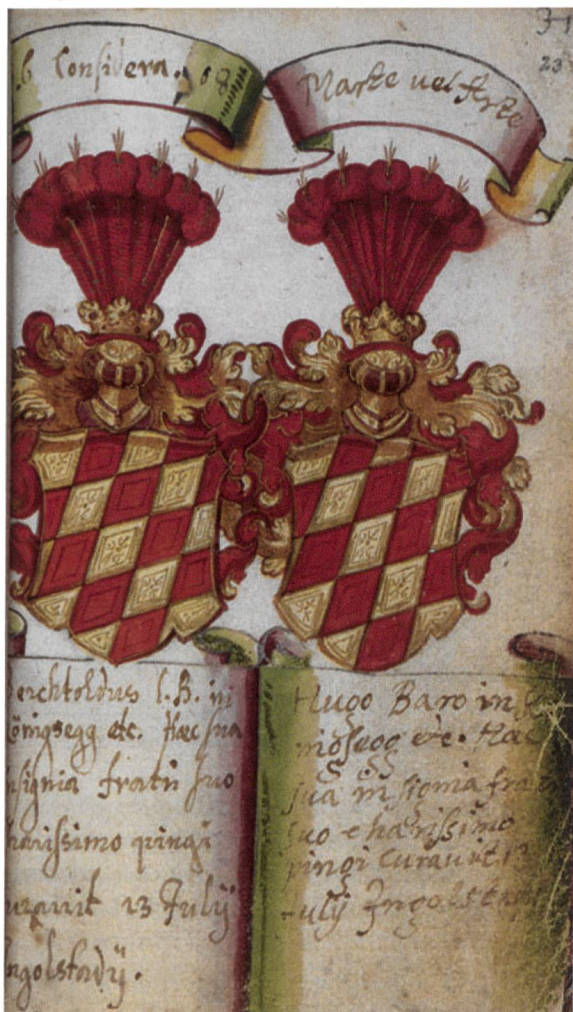 Considera. 18
Marte vel Arte
31
23
erchtoldus l. B. in
önigsegg etc. Hæc sua
nsignia fratri suo
harissimo pingi
uravit 13 Julÿ
ngolstadÿ.
Hugo Baro in
nigsegg etc. Hæc
sua insignia fra
suo charissimo
pingi curavit 13
July Ingolsta